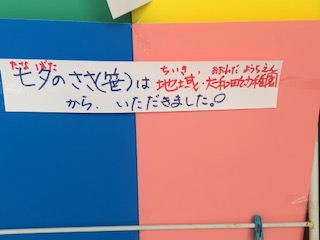 たなばた ちいき、 おおわだ ようちえん
七夕のささ(笹)は 地域・大和田幼稚園
から、いただきました。